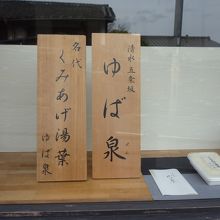 清水五条坂
ゆば泉
名代
くみあげ湯葉
ゆば泉